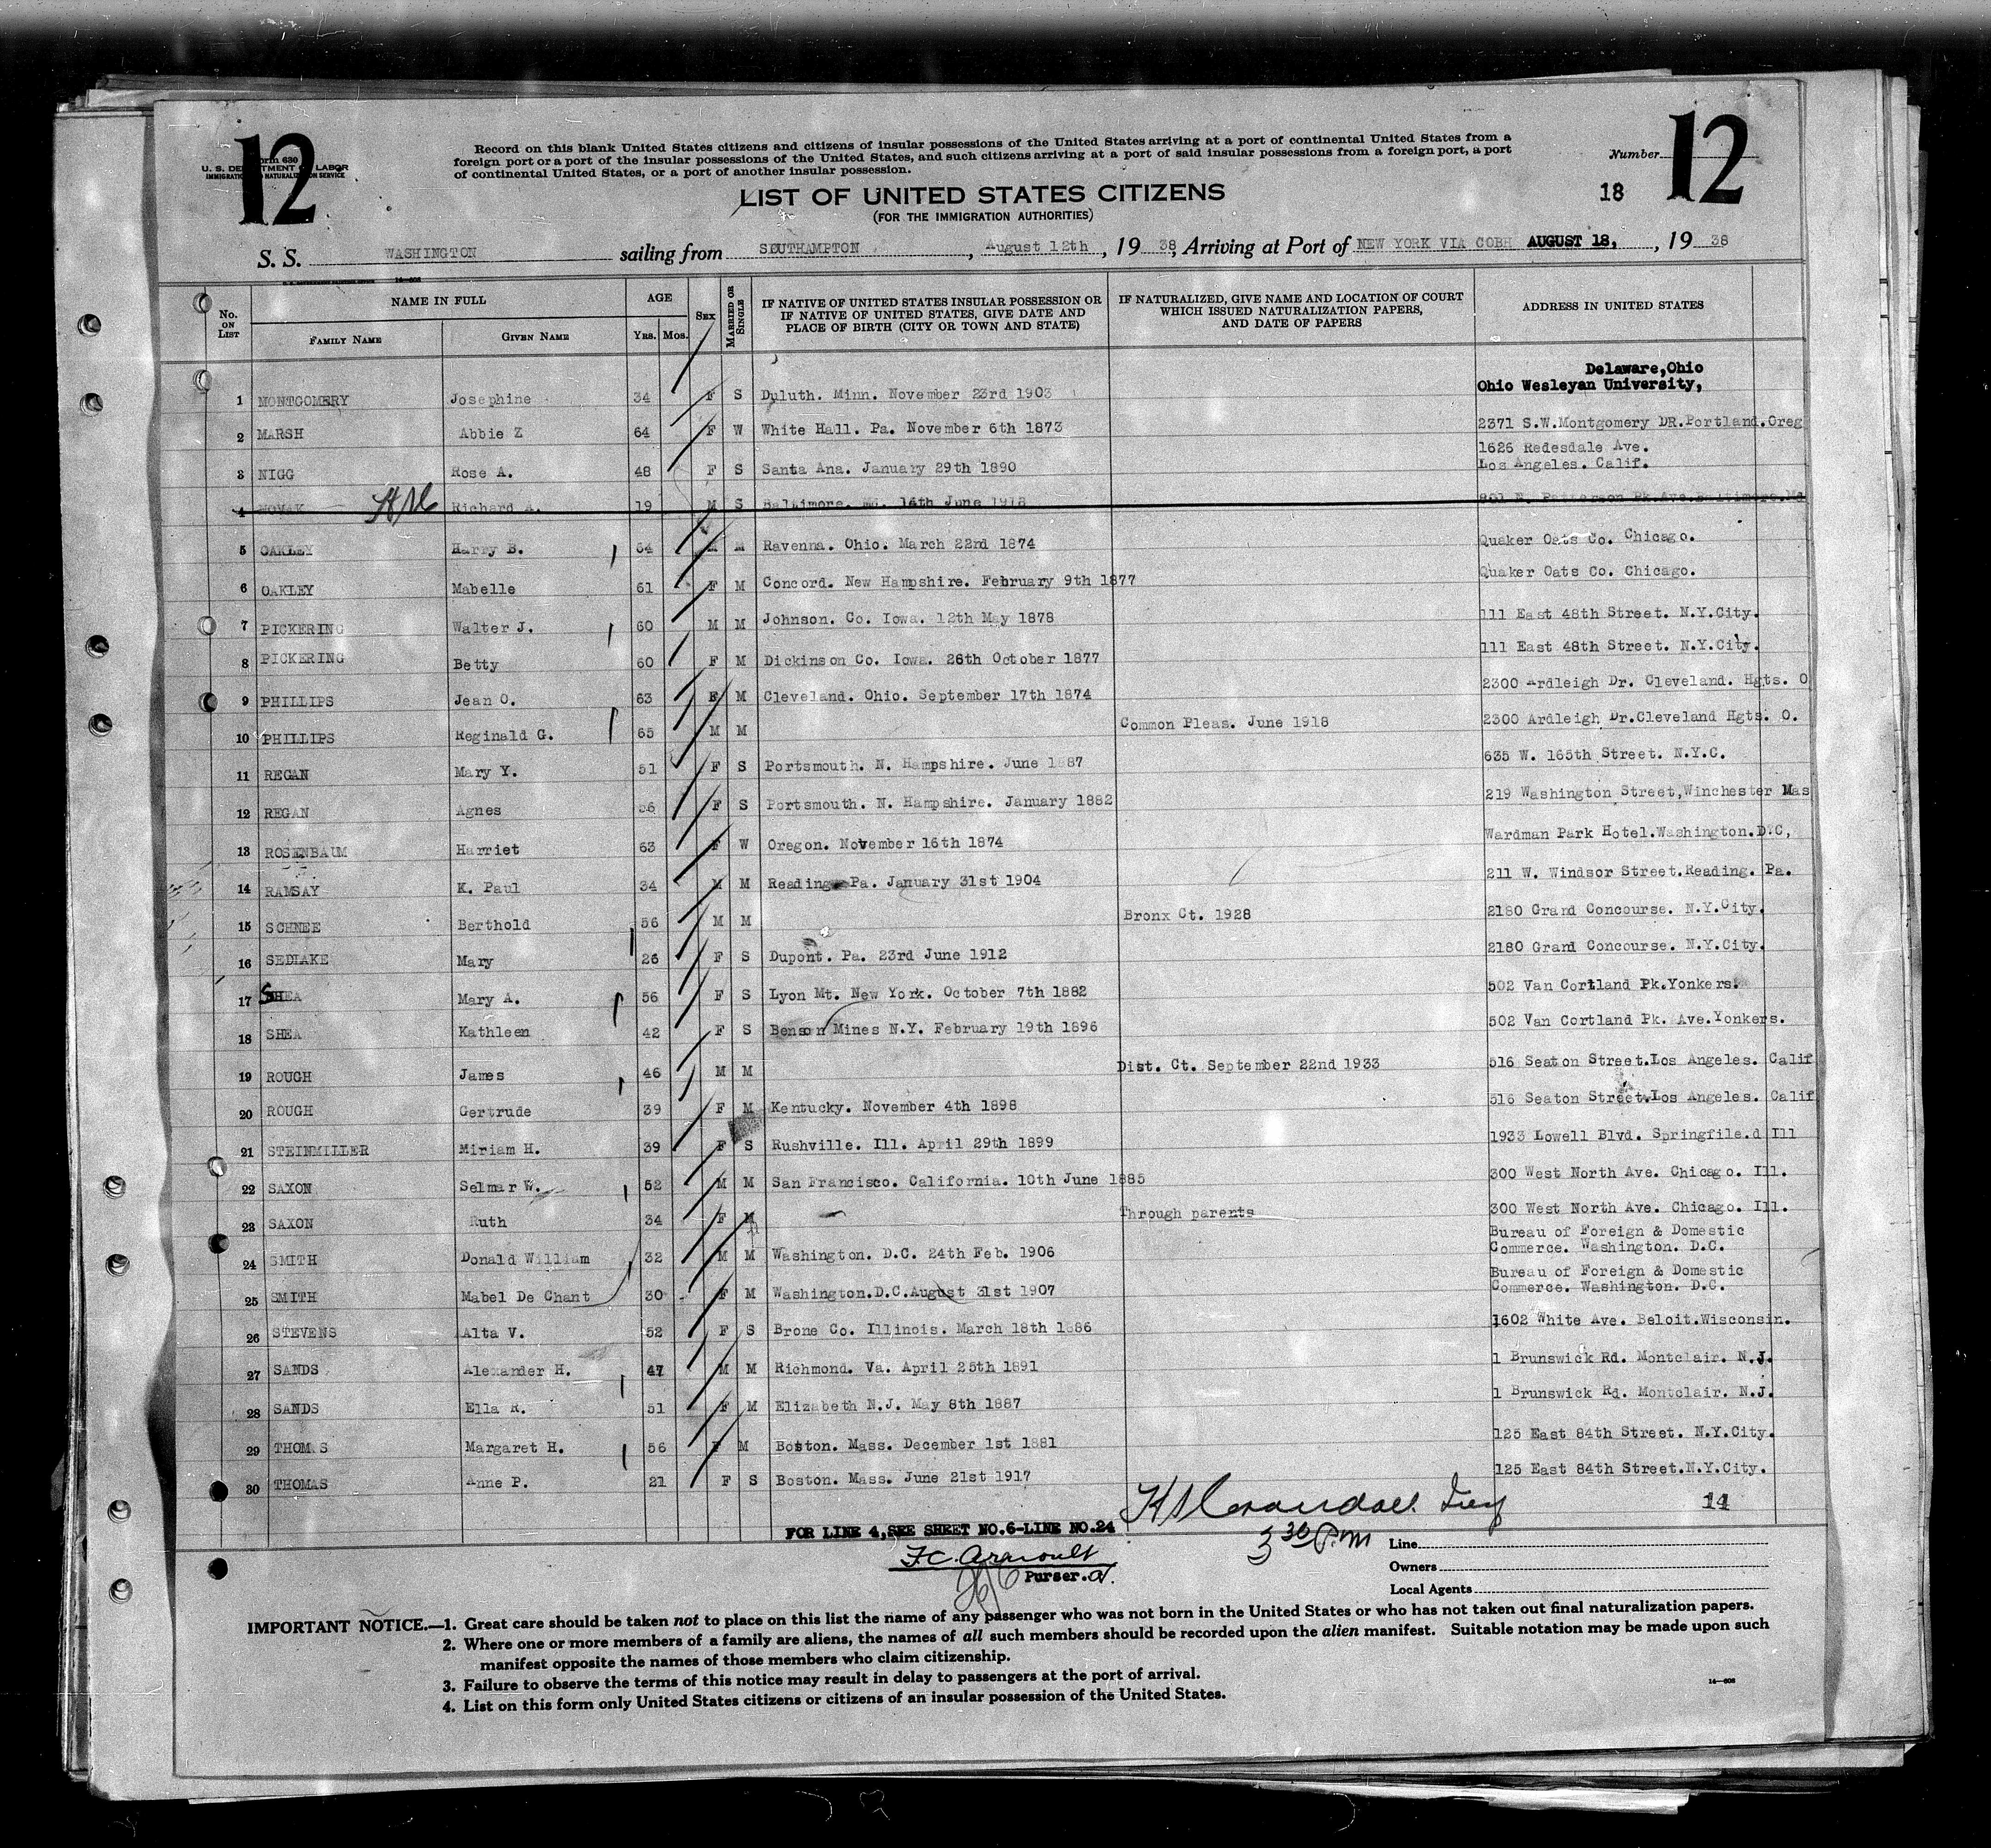 12
12
Form 630
U. S. DEPARTMENT OF LABOR
IMMIGRATION AND NATURALIZATION SERVICE
Record on this blank United States citizens and citizens of insular possessions of the United States arriving at a port of continental United States from a
foreign port or a port of the insular possessions of the United States, and such citizens arriving at a port of said insular possessions from a foreign port, a port
of continental United States, or a port of another insular possession.
Number
18
LIST OF UNITED STATES CITIZENS
(FOR THE IMMIGRATION AUTHORITIES)
S. S. WASHINGTON sailing from SOUTHAMPTON, August 12th, 19 38, Arriving at Port of NEW YORK VIA COBH AUGUST 18, , 19 38
No. ON LIST NAME IN FULL FAMILY NAME GIVEN NAME AGE YRS. MOS. SEX MARRIED OR SINGLE IF NATIVE OF UNITED STATES INSULAR POSSESSION OR IF NATIVE OF UNITED STATES, GIVE DATE AND PLACE OF BIRTH (CITY OR TOWN AND STATE) IF NATURALIZED, GIVE NAME AND LOCATION OF COURT WHICH ISSUED NATURALIZATION PAPERS, AND DATE OF PAPERS ADDRESS IN UNITED STATES
Delaware,Ohio
1 MONTGOMERY Josephine 34 F S Duluth. Minn. November 23rd 1903 Ohio Wesleyan University,
2 MARSH Abbie Z 64 F W White Hall. Pa. November 6th 1873 2371 S.W.Montgomery DR.Portland.Oreg
3 NIGG Rose A. 48 F S Santa Ana. January 29th 1890 1626 Redesdale Ave. Los Angeles. Calif.
4 NOVAK Richard A. 19 M S Baltimore. Md. 14th June 1918 801 E. Patterson Pk.Ave.Baltimore.Md
5 OAKLEY Harry B. 64 M M Ravenna. Ohio. March 22nd 1874 Quaker Oats Co. Chicago.
6 OAKLEY Mabelle 61 F M Concord. New Hampshire. February 9th 1877 Quaker Oats Co. Chicago.
7 PICKERING Walter J. 60 M M Johnson. Co. Iowa. 12th May 1878 111 East 48th Street. N.Y.City.
8 PICKERING Betty 60 F M Dickinson Co. Iowa. 26th October 1877 111 East 48th Street. N.Y.City.
9 PHILLIPS Jean O. 63 F M Cleveland. Ohio. September 17th 1874 2300 Ardleigh Dr. Cleveland. Hgts. O
10 PHILLIPS Reginald G. 65 M M Common Pleas. June 1918 2300 Ardleigh Dr.Cleveland Hgts. O.
11 REGAN Mary Y. 51 F S Portsmouth. N. Hampshire. June 1887 635 W. 165th Street. N.Y.C.
12 REGAN Agnes 56 F S Portsmouth. N. Hampshire. January 1882 219 Washington Street,Winchester Mas
13 ROSENBAUM Harriet 63 F W Oregon. November 16th 1874 Wardman Park Hotel.Washington.D.C,
14 RAMSAY K. Paul 34 M M Reading Pa. January 31st 1904 211 W. Windsor Street.Reading. Pa.
15 SCHNEE Berthold 56 M M Bronx Ct. 1928 2180 Grand Concourse. N.Y.City.
16 SEDIAKE Mary 26 F S Dupont. Pa. 23rd June 1912 2180 Grand Concourse. N.Y.City.
17 SHEA Mary A. 56 F S Lyon Mt. New York. October 7th 1882 502 Van Cortland Pk.Yonkers.
18 SHEA Kathleen 42 F S Benson Mines N.Y. February 19th 1896 502 Van Cortland Pk. Ave.Yonkers.
19 ROUGH James 46 M M Dist. Ct. September 22nd 1933 516 Seaton Street.Los Angeles. Calif
20 ROUGH Gertrude 39 F M Kentucky. November 4th 1898 516 Seaton Street.Los Angeles. Calif
21 STEINMILLER Miriam H. 39 F S Rushville. Ill. April 29th 1899 1933 Lowell Blvd. Springfile.d Ill
22 SAXON Selmar W. 52 M M San Francisco. California. 10th June 1885 300 West North Ave. Chicago. Ill.
23 SAXON Ruth 34 F M Through parents 300 West North Ave. Chicago. Ill.
24 SMITH Donald William 32 M M Washington. D.C. 24th Feb. 1906 Bureau of Foreign & Domestic Commerce. Washington. D.C.
25 SMITH Mabel De Chant 30 F M Washington.D.C.August 31st 1907 Bureau of Foreign & Domestic Commerce. Washington. D.C.
26 STEVENS Alta V. 52 F S Brone Co. Illinois. March 18th 1886 1602 White Ave. Beloit.Wisconsin.
27 SANDS Alexander H. 47 M M Richmond. Va. April 25th 1891 1 Brunswick Rd. Montclair. N.J.
28 SANDS Ella R. 51 F M Elizabeth N.J. May 8th 1887 1 Brunswick Rd. Montclair. N.J.
29 THOMAS Margaret H. 56 F M Boston. Mass. December 1st 1881 125 East 84th Street. N.Y.City.
30 THOMAS Anne P. 21 F S Boston. Mass. June 21st 1917 125 East 84th Street.N.Y.City.
14
FOR LINE 4,SEE SHEET NO.6-LINE NO.24
3 30 P.m
Purser.
Line
Owners
Local Agents
IMPORTANT NOTICE.—1. Great care should be taken not to place on this list the name of any passenger who was not born in the United States or who has not taken out final naturalization papers.
2. Where one or more members of a family are aliens, the names of all such members should be recorded upon the alien manifest. Suitable notation may be made upon such
manifest opposite the names of those members who claim citizenship.
3. Failure to observe the terms of this notice may result in delay to passengers at the port of arrival.
4. List on this form only United States citizens or citizens of an insular possession of the United States.
14—608